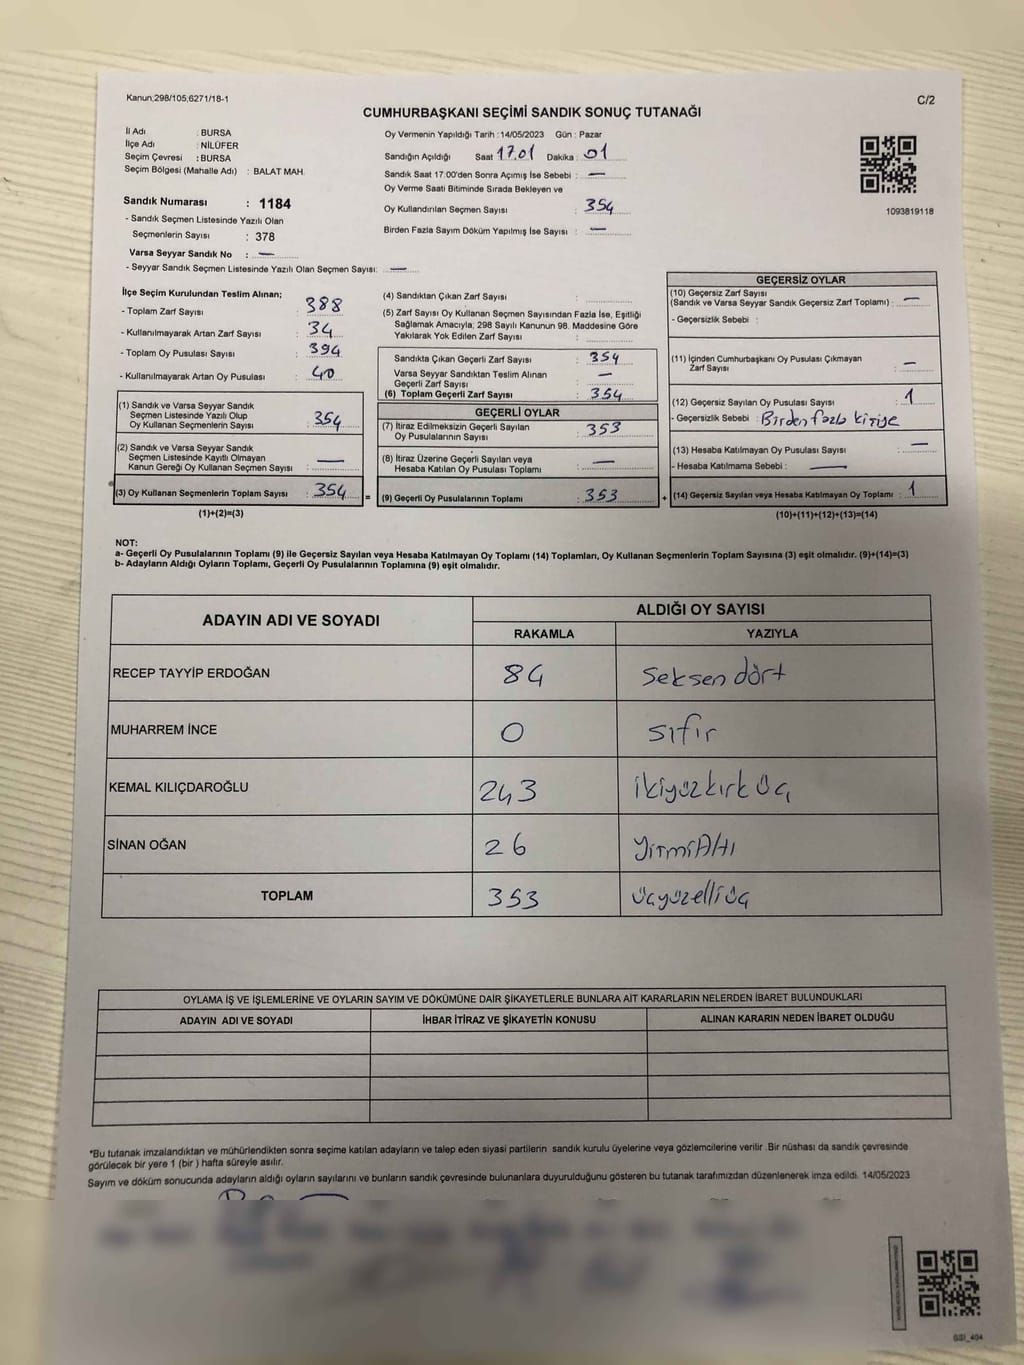 Kanun;298/105,6271/18-1
C/2
CUMHURBAŞKANI SEÇİMİ SANDIK SONUÇ TUTANAĞI
İl Adı : BURSA
İlçe Adı : NİLÜFER
Seçim Çevresi : BURSA
Seçim Bölgesi (Mahalle Adı) : BALAT MAH.
Sandık Numarası : 1184
- Sandık Seçmen Listesinde Yazılı Olan
Seçmenlerin Sayısı : 378
Varsa Seyyar Sandık No : —
- Seyyar Sandık Seçmen Listesinde Yazılı Olan Seçmen Sayısı: —
Oy Vermenin Yapıldığı Tarih : 14/05/2023 Gün : Pazar
Sandığın Açıldığı Saat 17.01 Dakika : 01
Sandık Saat 17:00'den Sonra Açımış İse Sebebi : —
Oy Verme Saati Bitiminde Sırada Bekleyen ve
Oy Kullandırılan Seçmen Sayısı : 354
Birden Fazla Sayım Döküm Yapılmış İse Sayısı : —
1093819118
İlçe Seçim Kurulundan Teslim Alınan;
- Toplam Zarf Sayısı : 388
- Kullanılmayarak Artan Zarf Sayısı : 34
- Toplam Oy Pusulası Sayısı : 394
- Kullanılmayarak Artan Oy Pusulası : 40
(1) Sandık ve Varsa Seyyar Sandık
Seçmen Listesinde Yazılı Olup
Oy Kullanan Seçmenlerin Sayısı : 354
(2) Sandık ve Varsa Seyyar Sandık
Seçmen Listesinde Kayıtlı Olmayan
Kanun Gereği Oy Kullanan Seçmen Sayısı : —
(3) Oy Kullanan Seçmenlerin Toplam Sayısı : 354 =
(1)+(2)=(3)
(4) Sandıktan Çıkan Zarf Sayısı :
(5) Zarf Sayısı Oy Kullanan Seçmen Sayısından Fazla İse, Eşitliği
Sağlamak Amacıyla; 298 Sayılı Kanunun 98. Maddesine Göre
Yakılarak Yok Edilen Zarf Sayısı :
Sandıkta Çıkan Geçerli Zarf Sayısı : 354
Varsa Seyyar Sandıktan Teslim Alınan
Geçerli Zarf Sayısı : —
(6) Toplam Geçerli Zarf Sayısı : 354
GEÇERLİ OYLAR
(7) İtiraz Edilmeksizin Geçerli Sayılan
Oy Pusulalarının Sayısı : 353
(8) İtiraz Üzerine Geçerli Sayılan veya
Hesaba Katılan Oy Pusulası Toplamı : —
(9) Geçerli Oy Pusulalarının Toplamı : 353 +
GEÇERSİZ OYLAR
(10) Geçersiz Zarf Sayısı
(Sandık ve Varsa Seyyar Sandık Geçersiz Zarf Toplamı) : —
- Geçersizlik Sebebi :
(11) İçinden Cumhurbaşkanı Oy Pusulası Çıkmayan
Zarf Sayısı : —
(12) Geçersiz Sayılan Oy Pusulası Sayısı : 1
- Geçersizlik Sebebi : Birden fazla kişiye
(13) Hesaba Katılmayan Oy Pusulası Sayısı : —
- Hesaba Katılmama Sebebi : —
(14) Geçersiz Sayılan veya Hesaba Katılmayan Oy Toplamı : 1
(10)+(11)+(12)+(13)=(14)
NOT:
a- Geçerli Oy Pusulalarının Toplamı (9) ile Geçersiz Sayılan veya Hesaba Katılmayan Oy Toplamı (14) Toplamları, Oy Kullanan Seçmenlerin Toplam Sayısına (3) eşit olmalıdır. (9)+(14)=(3)
b- Adayların Aldığı Oyların Toplamı, Geçerli Oy Pusulalarının Toplamına (9) eşit olmalıdır.
ADAYIN ADI VE SOYADI
ALDIĞI OY SAYISI
RAKAMLA YAZIYLA
RECEP TAYYİP ERDOĞAN 84 Seksen dört
MUHARREM İNCE 0 sıfır
KEMAL KILIÇDAROĞLU 243 ikiyüzkırk üç
SİNAN OĞAN 26 yirmiAltı
TOPLAM 353 üçyüzelliüç
OYLAMA İŞ VE İŞLEMLERİNE VE OYLARIN SAYIM VE DÖKÜMÜNE DAİR ŞİKAYETLERLE BUNLARA AİT KARARLARIN NELERDEN İBARET BULUNDUKLARI
ADAYIN ADI VE SOYADI İHBAR İTİRAZ VE ŞİKAYETİN KONUSU ALINAN KARARIN NEDEN İBARET OLDUĞU
*Bu tutanak imzalandıktan ve mühürlendikten sonra seçime katılan adayların ve talep eden siyasi partilerin sandık kurulu üyelerine veya gözlemcilerine verilir .Bir nüshası da sandık çevresinde
görülecek bir yere 1 (bir ) hafta süreyle asılır.
Sayım ve döküm sonucunda adayların aldığı oyların sayılarını ve bunların sandık çevresinde bulunanlara duyurulduğunu gösteren bu tutanak tarafımızdan düzenlenerek imza edildi. 14/05/2023
GSI_404